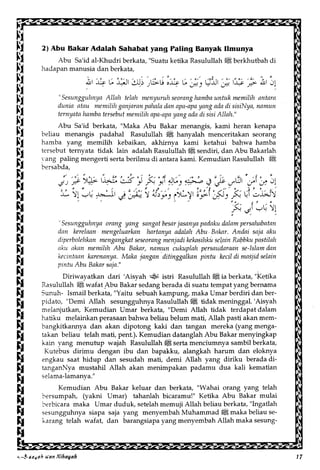 2) Abu Bakar Adalah Sahabat yang Paling Banyak Ilmunya
Abu Sa'id al-Khudri berkata, "Suatu ketika Rasulullah ﷺ berkhutbah di
hadapan manusia dan berkata,
"Sesungguhnya Allah telah menyuruh seorang hamba untuk memilih antara
dunia atau memilih ganjaran pahala dan apa-apa yang ada di sisiNya, namun
ternyata hamba tersebut memilih apa-apa yang ada di sisi Allah."
Abu Sa'id berkata, "Maka Abu Bakar menangis, kami heran kenapa
beliau menangis padahal Rasulullah ﷺ hanyalah menceritakan seorang
hamba yang memilih kebaikan, akhirnya kami ketahui bahwa hamba
tersebut ternyata tidak lain adalah Rasulullah ﷺ sendiri, dan Abu Bakarlah
yang paling mengerti serta berilmu di antara kami. Kemudian Rasulullah ﷺ
bersabda,
"Sesungguhnya orang yang sangat besar jasanya padaku dalam persahabatan
dan kerelaan mengeluarkan hartanya adalah Abu Bakar. Andai saja aku
diperbolehkan mengangkat seseorang menjadi kekasihku selain Rabbku pastilah
aku akan memilih Abu Bakar, namun cukuplah persaudaraan se-Islam dan
kecintaan karenanya. Maka jangan ditinggalkan pintu kecil di masjid selain
pintu Abu Bakar saja."
Diriwayatkan dari 'Aisyah istri Rasulullah ﷺ ia berkata, "Ketika
Rasulullah ﷺ wafat Abu Bakar sedang berada di suatu tempat yang bernama
Sunuh- Ismail berkata, "Yaitu sebuah kampung, maka Umar berdiri dan ber-
pidato, "Demi Allah sesungguhnya Rasulullah ﷺ tidak meninggal. 'Aisyah
melanjutkan, Kemudian Umar berkata, "Demi Allah tidak terdapat dalam
hatiku melainkan perasaan bahwa beliau belum mati, Allah pasti akan mem-
bangkitkannya dan akan dipotong kaki dan tangan mereka (yang menga-
takan beliau telah mati, pent.). Kemudian datanglah Abu Bakar menyingkap
kain yang menutup wajah Rasulullah ﷺ serta menciumnya sambil berkata,
Kutebus dirimu dengan ibu dan bapakku, alangkah harum dan eloknya
engkau saat hidup dan sesudah mati, demi Allah yang diriku berada di-
tanganNya mustahil Allah akan menimpakan padamu dua kali kematian
selama-lamanya."
Kemudian Abu Bakar keluar dan berkata, "Wahai orang yang telah
bersumpah, (yakni Umar) tahanlah bicaramu!" Ketika Abu Bakar mulai
berbicara maka Umar duduk, setelah memuji Allah beliau berkata, "Ingatlah
sesungguhnya siapa saja yang menyembah Muhammad ﷺ maka beliau se-
karang telah wafat, dan barangsiapa yang menyembah Allah maka sesung-
17